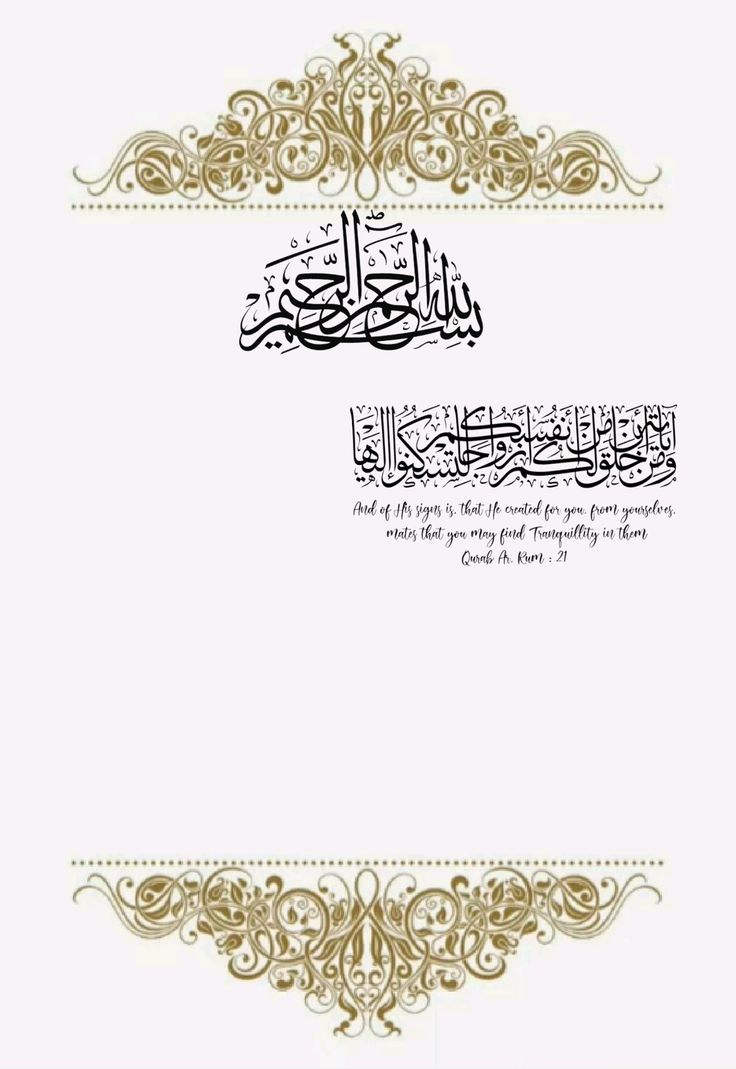 بسم الله الرحمن الرحيم
ومن آياته أن خلق لكم من أنفسكم أزواجا لتسكنوا إليها
And of His signs is, that He created for you, from yourselves,
mates that you may find Tranquillity in them
Qurab Ar. Rum : 21